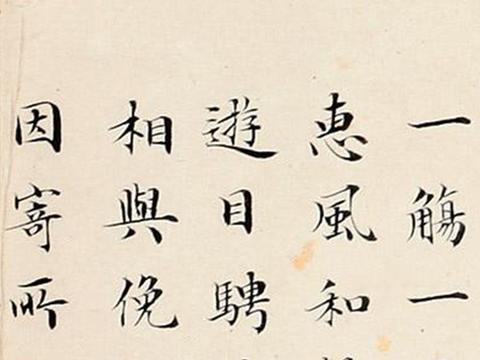 一觴一
惠風和
遊目騁
相與俛
因寄所